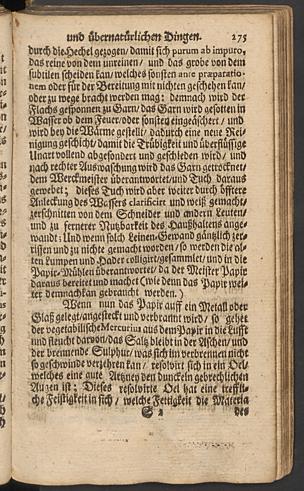 und übernatürlichen Dingen. 275
durch die Hechel gezogen/ damit sich purum ab impuro,
das reine von dem unreinen/ und das grobe von dem
subtilen scheiden kan/ welches sonsten ante præparatio-
nem oder für der Bereitung mit nichten geschehen kan/
oder zu wege bracht werden mag: demnach wird der
Flachs gesponnen zu Garn/ das Garn wird gesotten in
Wasser ob dem Feuer/ oder sonsten eingeäschert/ und
wird bey die Wärme gestellt/ dadurch eine neue Rei-
nigung geschicht/ damit die Trübigkeit und überflüssige
Unart vollend abgesondert und geschieden wird/ und
nach rechter Auswaschung wird das Garn getrocknet/
dem Werckmeister überantwortet/ und Tuch daraus
gewebet; dieses Tuch wird aber weiter durch öfftere
Anleckung des Wassers clarificirt und weiß gemacht/
zerschnitten von dem Schneider und andern Leuten/
und zu fernerer Nutzbarkeit des Haußhaltens ange-
wandt: Und wenn solch Leinen-Gewand gäntzlich zer-
rissen und zu nichte gemacht worden/ so werden die al-
ten Lumpen und Hader colligirt/ gesammlet/ und in die
Papir-Mühlen überantwortet/ da der Meister Papir
daraus bereitet und machet (wie denn das Papir wei-
ter dennach kan gebraucht werden.)
Wenn nun das Papir auff ein Metall oder
Glaß gelegt/ angesteckt und verbrannt wird/ so gehet
der vegetabilische Mercurius aus dem Papir in die Lufft
und fleucht davon/ das Saltz bleibt in der Aschen/ und
der brennende Sulphur/ was sich im verbrennen nicht
so geschwinde verzehren kan/ resolvirt sich in ein Oel/
welches eine gute Artzney den dunckeln gebrechlichen
Augen ist; Dieses resolvirte Oel hat eine treffli-
che Feistigkeit in sich/ welche Fettigkeit die Materia
S 2 des